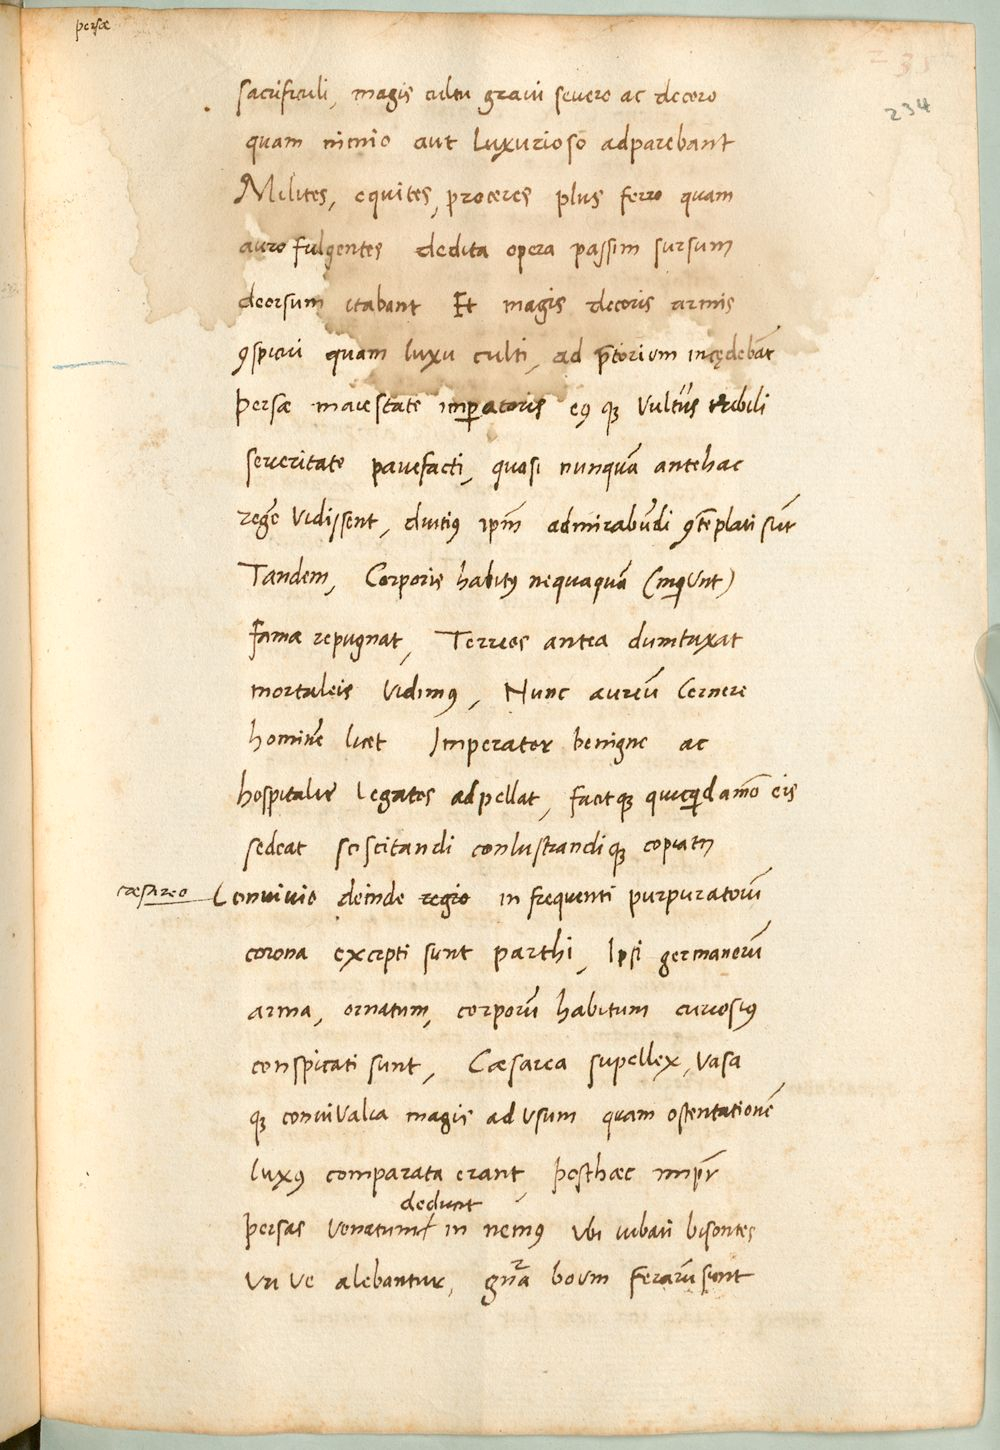 persæ
234
sacrificuli, magis cultu graui seuero ac decoro
quam nimio aut luxurioso adparebant
Milites, equites, proceres plus ferro quam
auro fulgentes dedita opera passim sursum
deorsum itabant Et magis decoris armis
ꝯspicui quam luxu culti, ad p̄torium incędebāt
persæ maiestate imꝑatoris eiꝰ qꝫ Vultus
seueritate pauefacti, quasi nunquā antehac
regē Vidissent, diutiꝰ ipm̄ admirabūdi ꝯtēplati sūt
Tandem, Corporis habitꝰ nequaquā (inquiunt)
famæ repugnat, Terreos antea dumtaxat
mortaleis Vidimꝰ, Nunc aureū Cernere
hominē licet Imperator benigne ac
hospitalis legatos adpellat, facitqꝫ quicquid amō eis
sedeat sciscitandi conlustrandiqꝫ copiam
cæsareo
Conuiuio deinde regio in frequenti purpuratorū
corona excepti sunt parthi, Ipsi germanorū
arma, ornatum, corporū habitum curiosiꝰ
conspicati sunt, Cæsarea supellex, Vasa
qꝫ conuiValia magis ad Vsum quam ostentationē
luxꝰ comparata erant, posthæc imp̄r
deducit
persas Venatum in nemꝰ Vbi iubati bisontes
Vri Ve alebantur, gn̄ra boum ferarū sunt